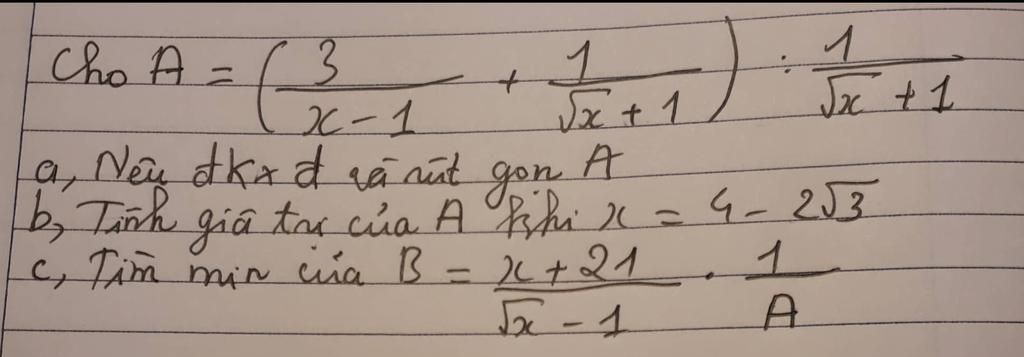 Cho A = ( 3 / (x - 1) + 1 / (√x + 1) ) : 1 / (√x + 1)
a, Nêu đkxđ và rút gọn A
b, Tính giá trị của A khi x = 4 - 2√3
c, Tìm min của B = (x + 21) / (√x - 1) . 1 / A